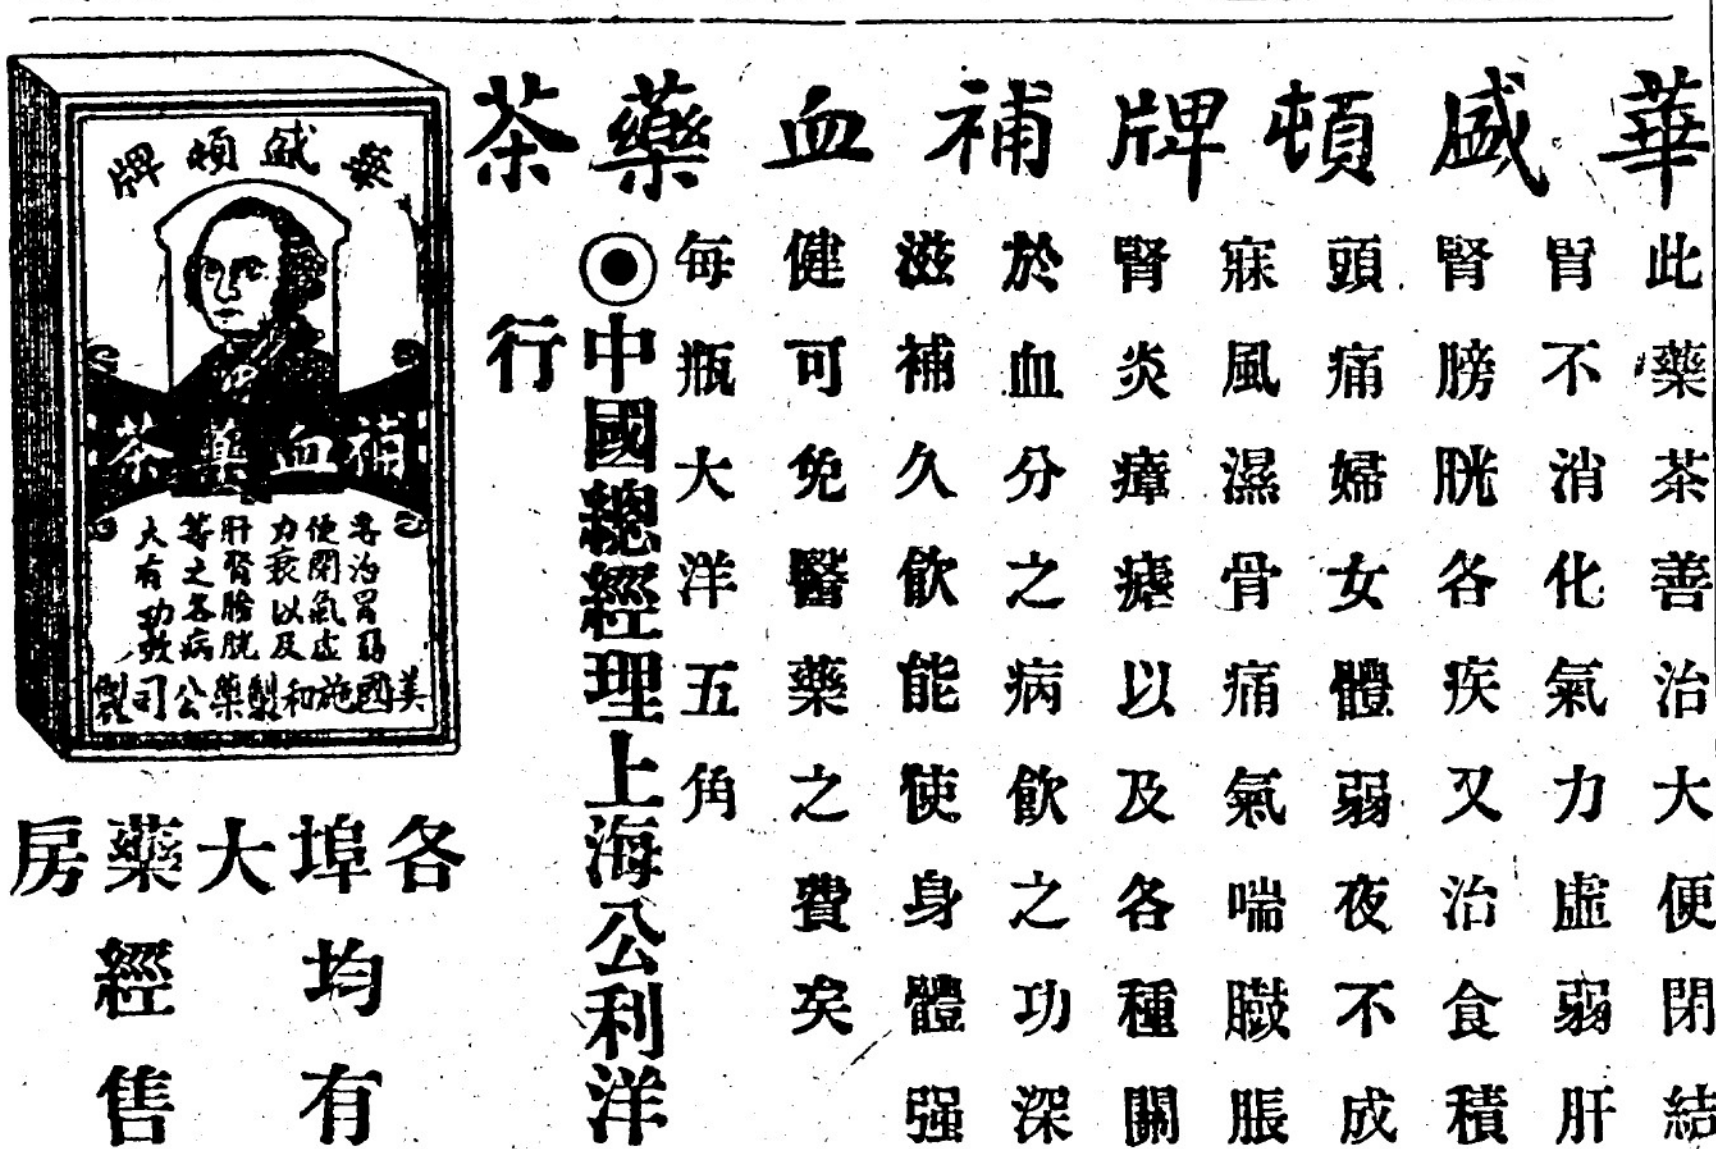 華盛頓牌補血藥茶
此藥茶善治大便閉結
胃不消化氣力虛弱肝
腎膀胱各疾又治食積
頭痛婦女體弱夜不成
寐風濕骨痛氣喘臌脹
腎炎瘴瘧以及各種關
於血分之病飲之功深
滋補久飲能使身體强
健可免醫藥之費矣
每瓶大洋五角
◉中國總經理上海公利洋
行
華盛頓牌
補血藥茶
專治胃弱
便閉氣虛
力衰以及
肝腎膀胱
等之各病
大有功效
美國施和製藥公司製
各埠大藥房
均有
經售